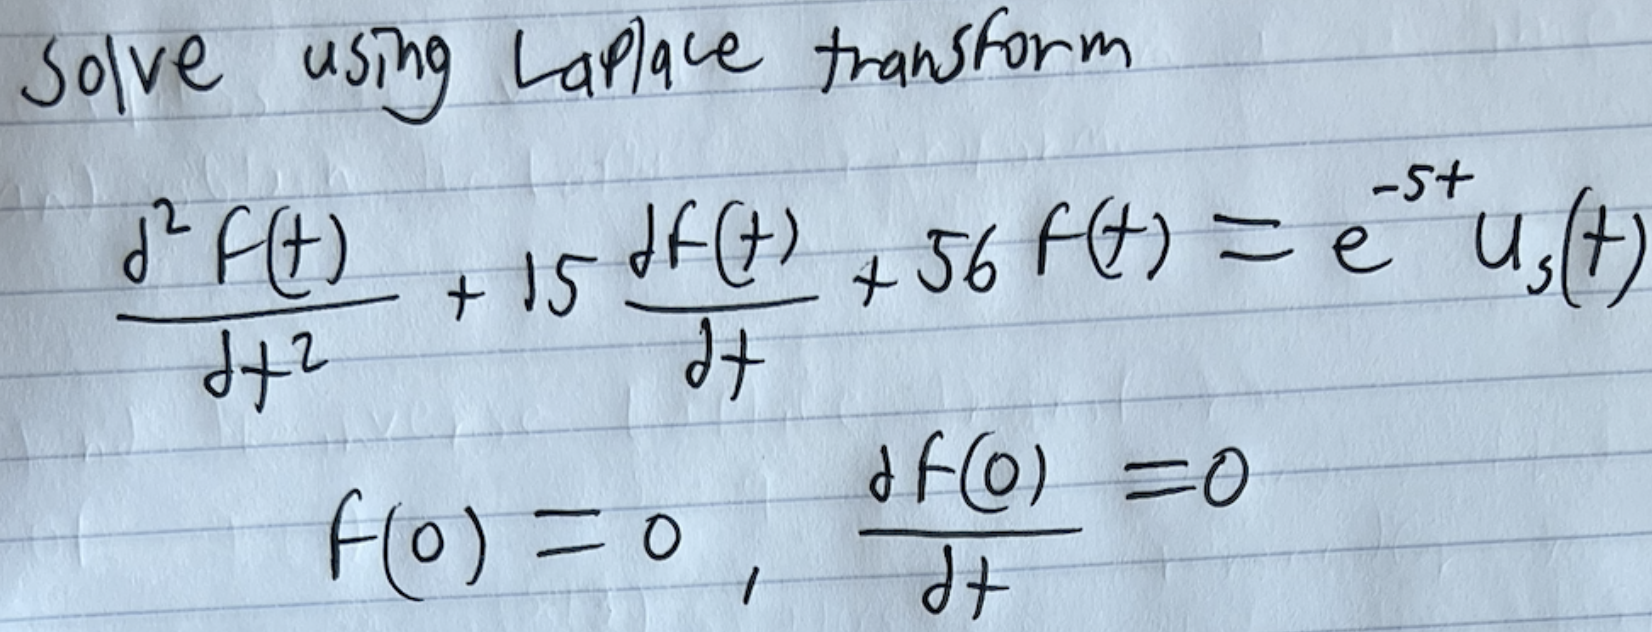 Solve using Laplace transform
d² f(t)/dt² + 15 df(t)/dt + 56 f(t) = e^-5t u_s(t)
f(0) = 0, df(0)/dt = 0